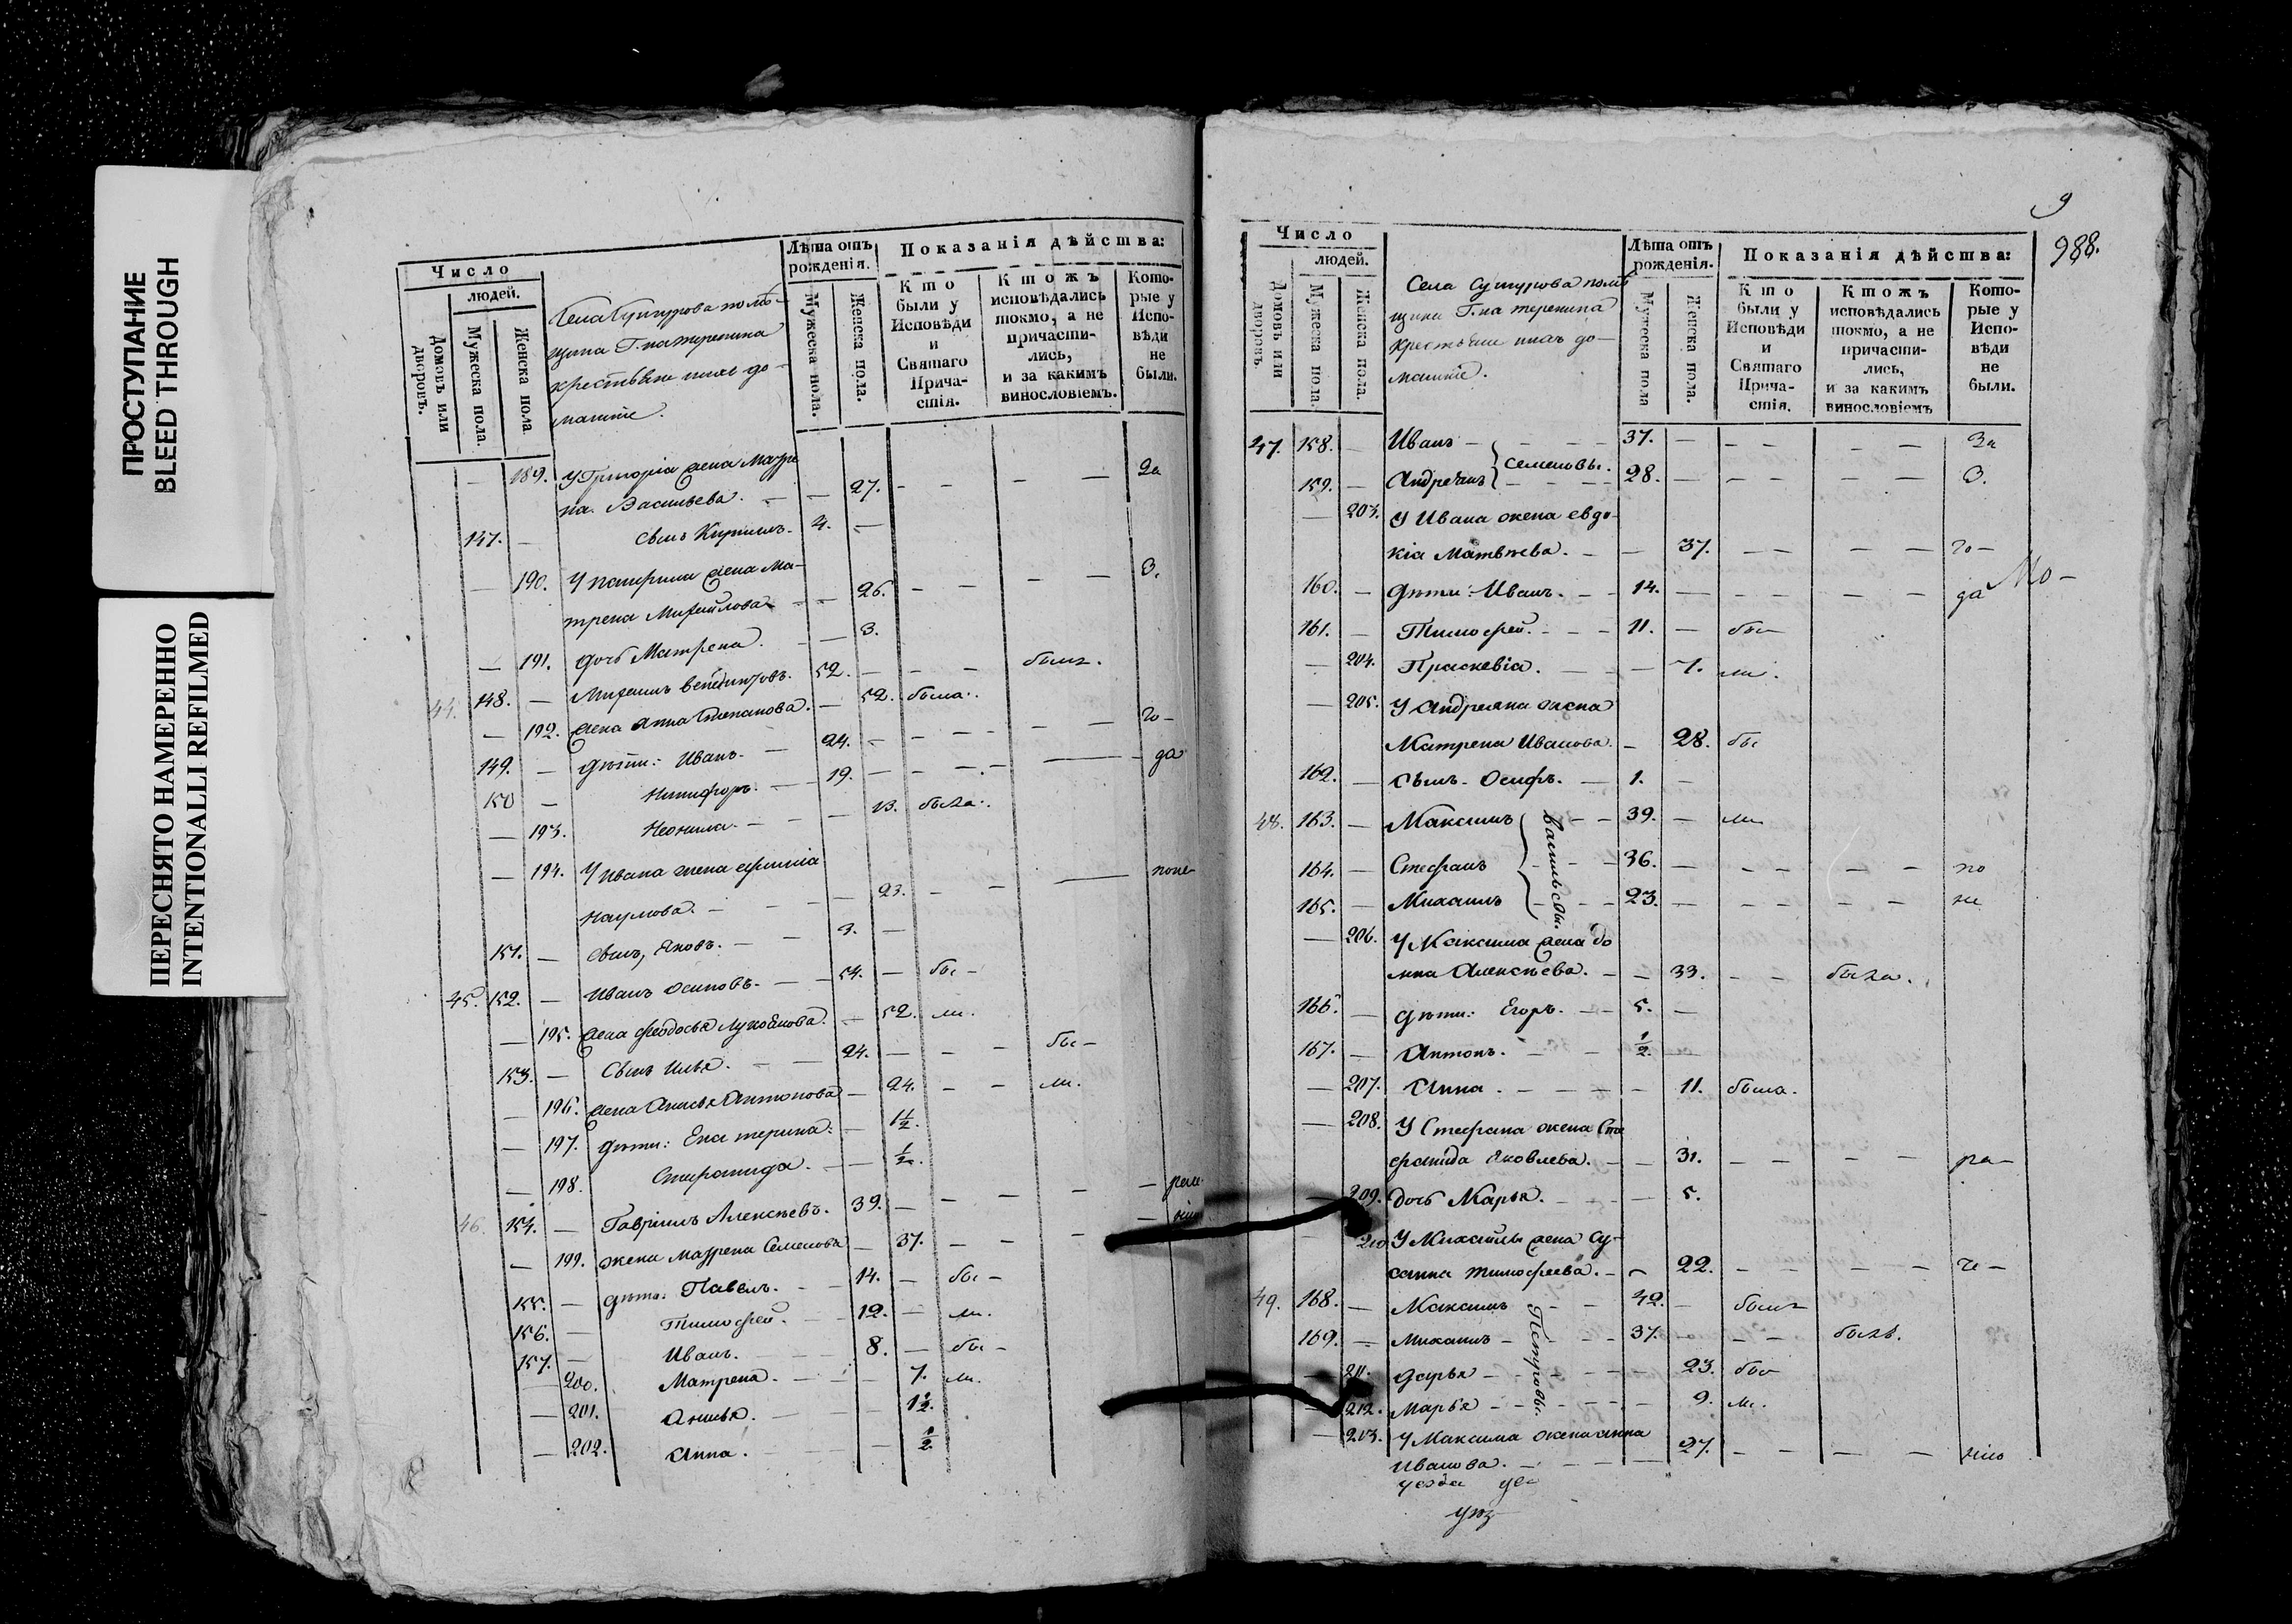 ПРОСТУПАНИЕ
BLEED THROUGH
ПЕРЕСНЯТО НАМЕРЕННО
INTENTIONALLI REFILMED
Число
людей.
Домовъ или дворовъ.
Мужеска пола.
Женска пола.
крестьяне ихъ до-
Лѣта отъ рожденія.
Мужеска пола.
Женска пола.
Показанія дѣйства:
Кто были у Исповѣди и Святаго Прича-стія.
Ктожъ исповѣдались токмо, а не причасти-лись, и за какимъ винословіемъ.
Кото-рые у Испо-вѣди не были.
— 189. У Григорія жена Мавре За
на Васильева. — — 27. — — — —
147. — сынъ Кирилъ. 4. —
— 190. У жена Ма- З.
трена Михайлова — — 26. — — — —
— 191. дочь Матрена. — — 3.
44. 148. — Михаилъ 52. — — — былъ.
— 192. жена Анна Степанова. — 52. была.
149. — дѣти: Иванъ. — 24. — — — — — го-
150 — Никифоръ. — 19. — — — — да
— 193. Неонила. — — — 13. была.
— 194. У Ивана жена
Наумова. — — — 23. — — —
151. — сынъ, Яковъ. — — 3. —
45. 152. — Иванъ Осиповъ. — — 54. — бы-
— 195. жена Феодосья — 52. ли.
153. — Сынъ Илья. — — 24. — — — бы-
— 196. жена Анисья Антонова — 24. — — ли.
— 197. дѣти: Екатерина. — 1½.
— 198. — — ½.
46. 154. — Гавріилъ Алексѣевъ. 39. — — — —
— 199. жена Маврена Семенова — 37. — — —
155. — дѣти: Павелъ. — 14. — бы-
156. — Тимофей. — 12. — ли.
157. — Иванъ. — 8. — бы-
— 200. Матрена. — — 7. ли.
— 201. Анисья. — — 1½.
— 202. Анна. — — ½
9
988.
Число
людей.
Домовъ или дворовъ
Мужеска пола.
Женска пола.
крестьяне ихъ до-
Лѣта отъ рожденія.
Мужеска пола
Женска пола.
Показанія дѣйства:
Кто были у Исповѣди и Святаго Прича-стія.
Ктожъ исповѣдались токмо, а не причасти-лись, и за какимъ винословіемъ
Кото-рые у Испо-вѣди не были.
47. 158. — Иванъ — — — 37. — — — — — За
Семеновы.
159. — Андреянъ — — — 28. — — — — — З.
— 203. У Ивана жена Евдо-
кія Матвѣева. — — 37. — — — — го-
Мо-
160. — дѣти: Иванъ. — — 14. — — — — — да
161. — Тимофей. — — — 11. — бы-
— 204. Праскевіа. — — — 7. ли.
— 205. У Андреяна жена
Матрена Иванова. — 28. бы
162. — сынъ Осифъ. — 1. —
48. 163. — Максимъ — — 39. — ли
Васильевы.
164. — Стефанъ — — — 36. — — — — — по
165. — Михаилъ — — — 23. — — — — — не
— 206. У Максима жена До
мна Алексѣева. — — 33. — — была.
166. — дѣти: Егоръ. — — 5. —
167. — Антонъ. — — ½ —
— 207. Анна. — — — — 11. была.
— 208. У Стефана жена Сте
фанида Яковлева. — — 31. — — — — ра-
— 209. дочь Марья. — — — 5.
210 У Михайлы жена Су-
санна Тимофеева. — — 22. — — — — че-
49. 168. — Максимъ — — 42. — былъ
Петровы.
169. — Михаилъ — — — 37. — — — былъ.
— 211. Дарья — — — — — 23. бы
— 212. Марья — — — — — 9. ли.
— 213. У Максима жена Анна
Иванова. — — — — 27. — — — — нію